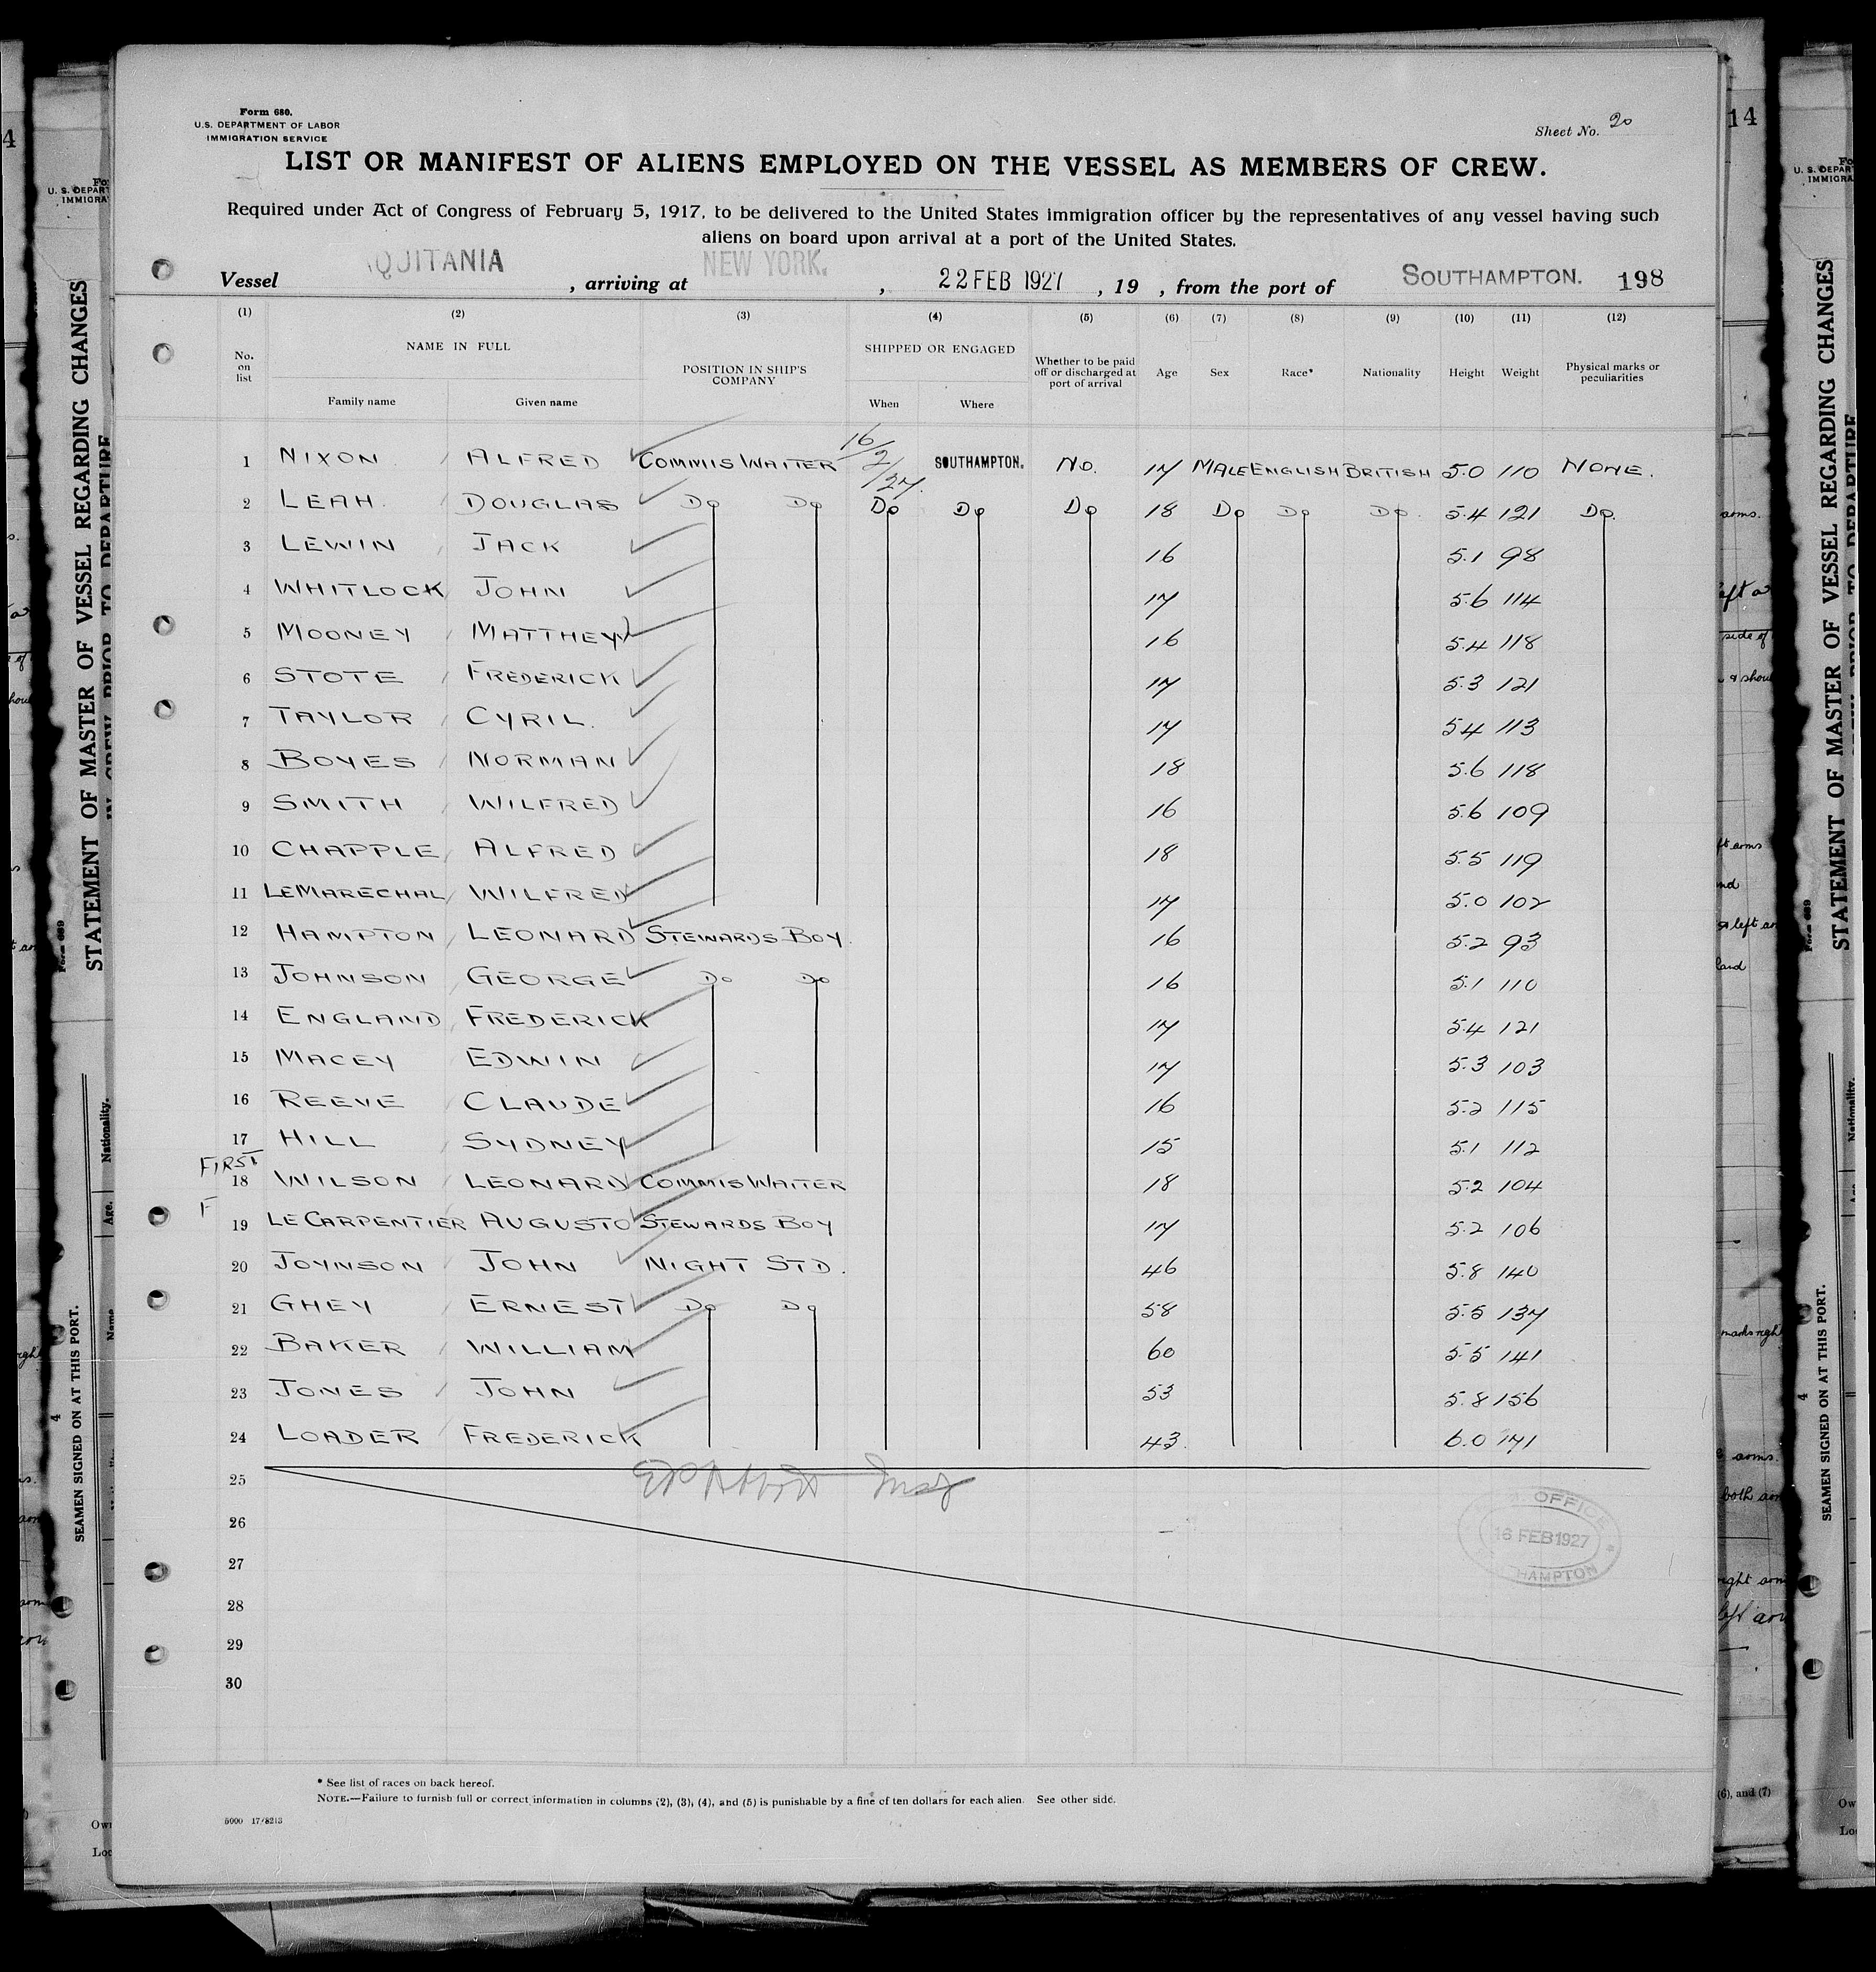 Form 680.
U.S. DEPARTMENT OF LABOR
IMMIGRATION SERVICE
Sheet No. 20
LIST OR MANIFEST OF ALIENS EMPLOYED ON THE VESSEL AS MEMBERS OF CREW.
Required under Act of Congress of February 5, 1917, to be delivered to the United States immigration officer by the representatives of any vessel having such
aliens on board upon arrival at a port of the United States.
Vessel AQUITANIA , arriving at NEW YORK. , 22 FEB 1927 , 19 , from the port of SOUTHAMPTON. 198
(1) (2) (3) (4) (5) (6) (7) (8) (9) (10) (11) (12)
No. on list NAME IN FULL POSITION IN SHIP'S COMPANY SHIPPED OR ENGAGED Whether to be paid off or discharged at port of arrival Age Sex Race* Nationality Height Weight Physical marks or peculiarities
Family name Given name When Where
1 NIXON ALFRED COMMIS WAITER 16/2/27. SOUTHAMPTON. NO. 17 MALE ENGLISH BRITISH 5.0 110 NONE.
2 LEAH. DOUGLAS Do Do Do Do Do 18 Do Do Do. 5.4 121 Do.
3 LEWIN JACK 16 5.1 98
4 WHITLOCK JOHN 17 5.6 114
5 MOONEY MATTHEW 16 5.4 118
6 STOTE FREDERICK 17 5.3 121
7 TAYLOR CYRIL. 17 5.4 113
8 BOYES NORMAN 18 5.6 118
9 SMITH WILFRED 16 5.6 109
10 CHAPPLE ALFRED 18 5.5 119
11 LEMARECHAL WILFRED 17 5.0 102
12 HAMPTON LEONARD STEWARDS BOY. 16 5.2 93
13 JOHNSON GEORGE Do Do 16 5.1 110
14 ENGLAND FREDERICK 17 5.4 121
15 MACEY EDWIN 17 5.3 103
16 REEVE CLAUDE 16 5.2 115
17 HILL SYDNEY 15 5.1 112
FIRST
18 WILSON LEONARD COMMIS WAITER 18 5.2 104
F
19 LE CARPENTIER AUGUSTO STEWARDS BOY 17 5.2 106
20 JOYNSON JOHN NIGHT STD. 46 5.8 140
21 GHEY ERNEST Do Do 58 5.5 137
22 BAKER WILLIAM 60 5.5 141
23 JONES JOHN 53 5.8 156
24 LOADER FREDERICK 43. 6.0 171
25
26
27
28
29
30
OFFICE
16 FEB 1927
HAMPTON
* See list of races on back hereof.
NOTE.—Failure to furnish full or correct information in columns (2), (3), (4), and (5) is punishable by a fine of ten dollars for each alien. See other side.
5000 17/8213
STATEMENT OF MASTER OF VESSEL REGARDING CHANGES
IN CREW PRIOR TO DEPARTURE
Form 689
SEAMEN SIGNED ON AT THIS PORT.
Nationality.
Age.
Name
14
STATEMENT OF MASTER OF VESSEL REGARDING CHANGES
SEAMEN SIGNED ON AT THIS PORT.
(6), and (7)